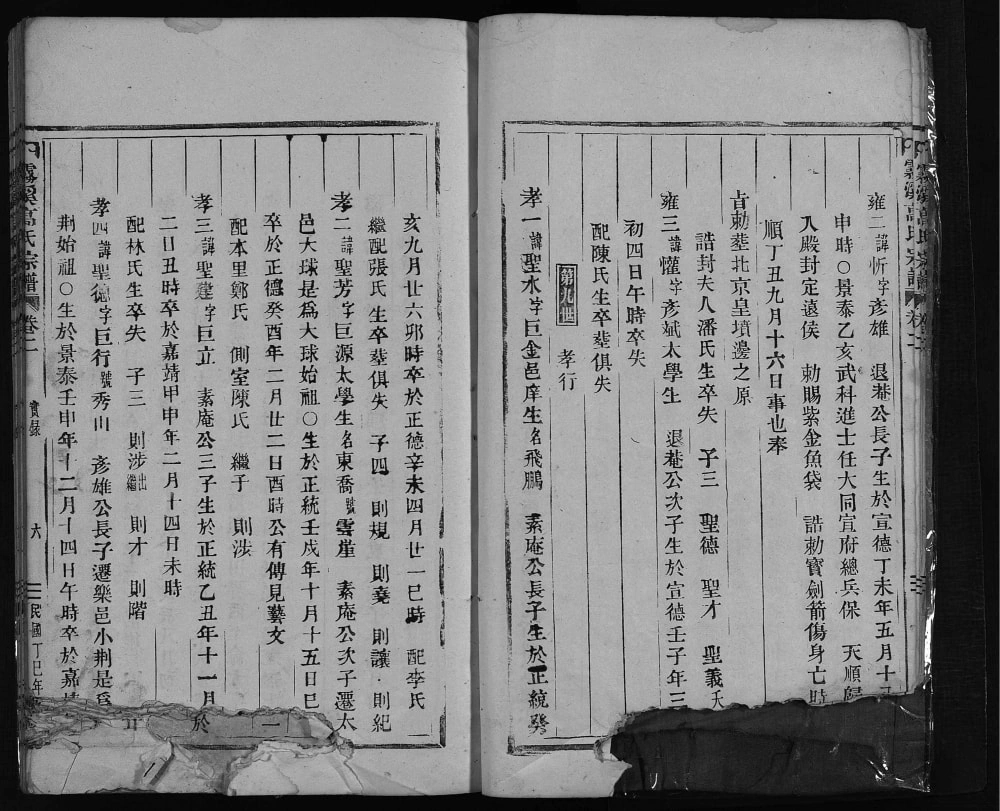 雍二諱忻字彦雄　退菴公長子生於宣德丁未年五月十
申時○景泰乙亥武科進士任大同宣府總兵保　天順歸
入殿封定遠侯　勅賜紫金魚袋　誥勅寶劍箭傷身亡時
順丁丑九月十六日事也奉
旨勅塟北京皇墳邊之原
誥封夫人潘氏生卒失　子三　聖德　聖才　聖義夭
雍三諱懽字彦斌太學生　退菴公次子生於宣德壬子年三
初四日午時卒失
配陳氏生卒塟俱失
第九世　孝行
孝一諱聖水字巨金邑庠生名飛鵬　素庵公長子生於正統癸
亥九月廿六夘時卒於正德辛未四月廿一巳時　配李氏
繼配張氏生卒塟俱失　子四　則規　則堯　則讓　則紀
孝二諱聖芳字巨源太學生名東喬號雲崖　素庵公次子遷太
邑大球是爲大球始祖○生於正統壬戌年十月十五日巳
卒於正德癸酉年二月廿二日酉時公有傳見藝文
配本里鄭氏　側室陳氏　繼子　則涉
孝三諱聖建字巨立　素庵公三子生於正統乙丑年十一月於
二日丑時卒於嘉靖甲申年二月十四日未時
配林氏生卒失　子三　則涉出繼　則才　則階
孝四諱聖德字巨行號秀山　彦雄公長子遷樂邑小荆是爲
荆始祖○生於景泰壬申年十二月十四日午時卒於嘉靖
霧溪高氏宗譜　卷二　實錄　六　民國丁巳年